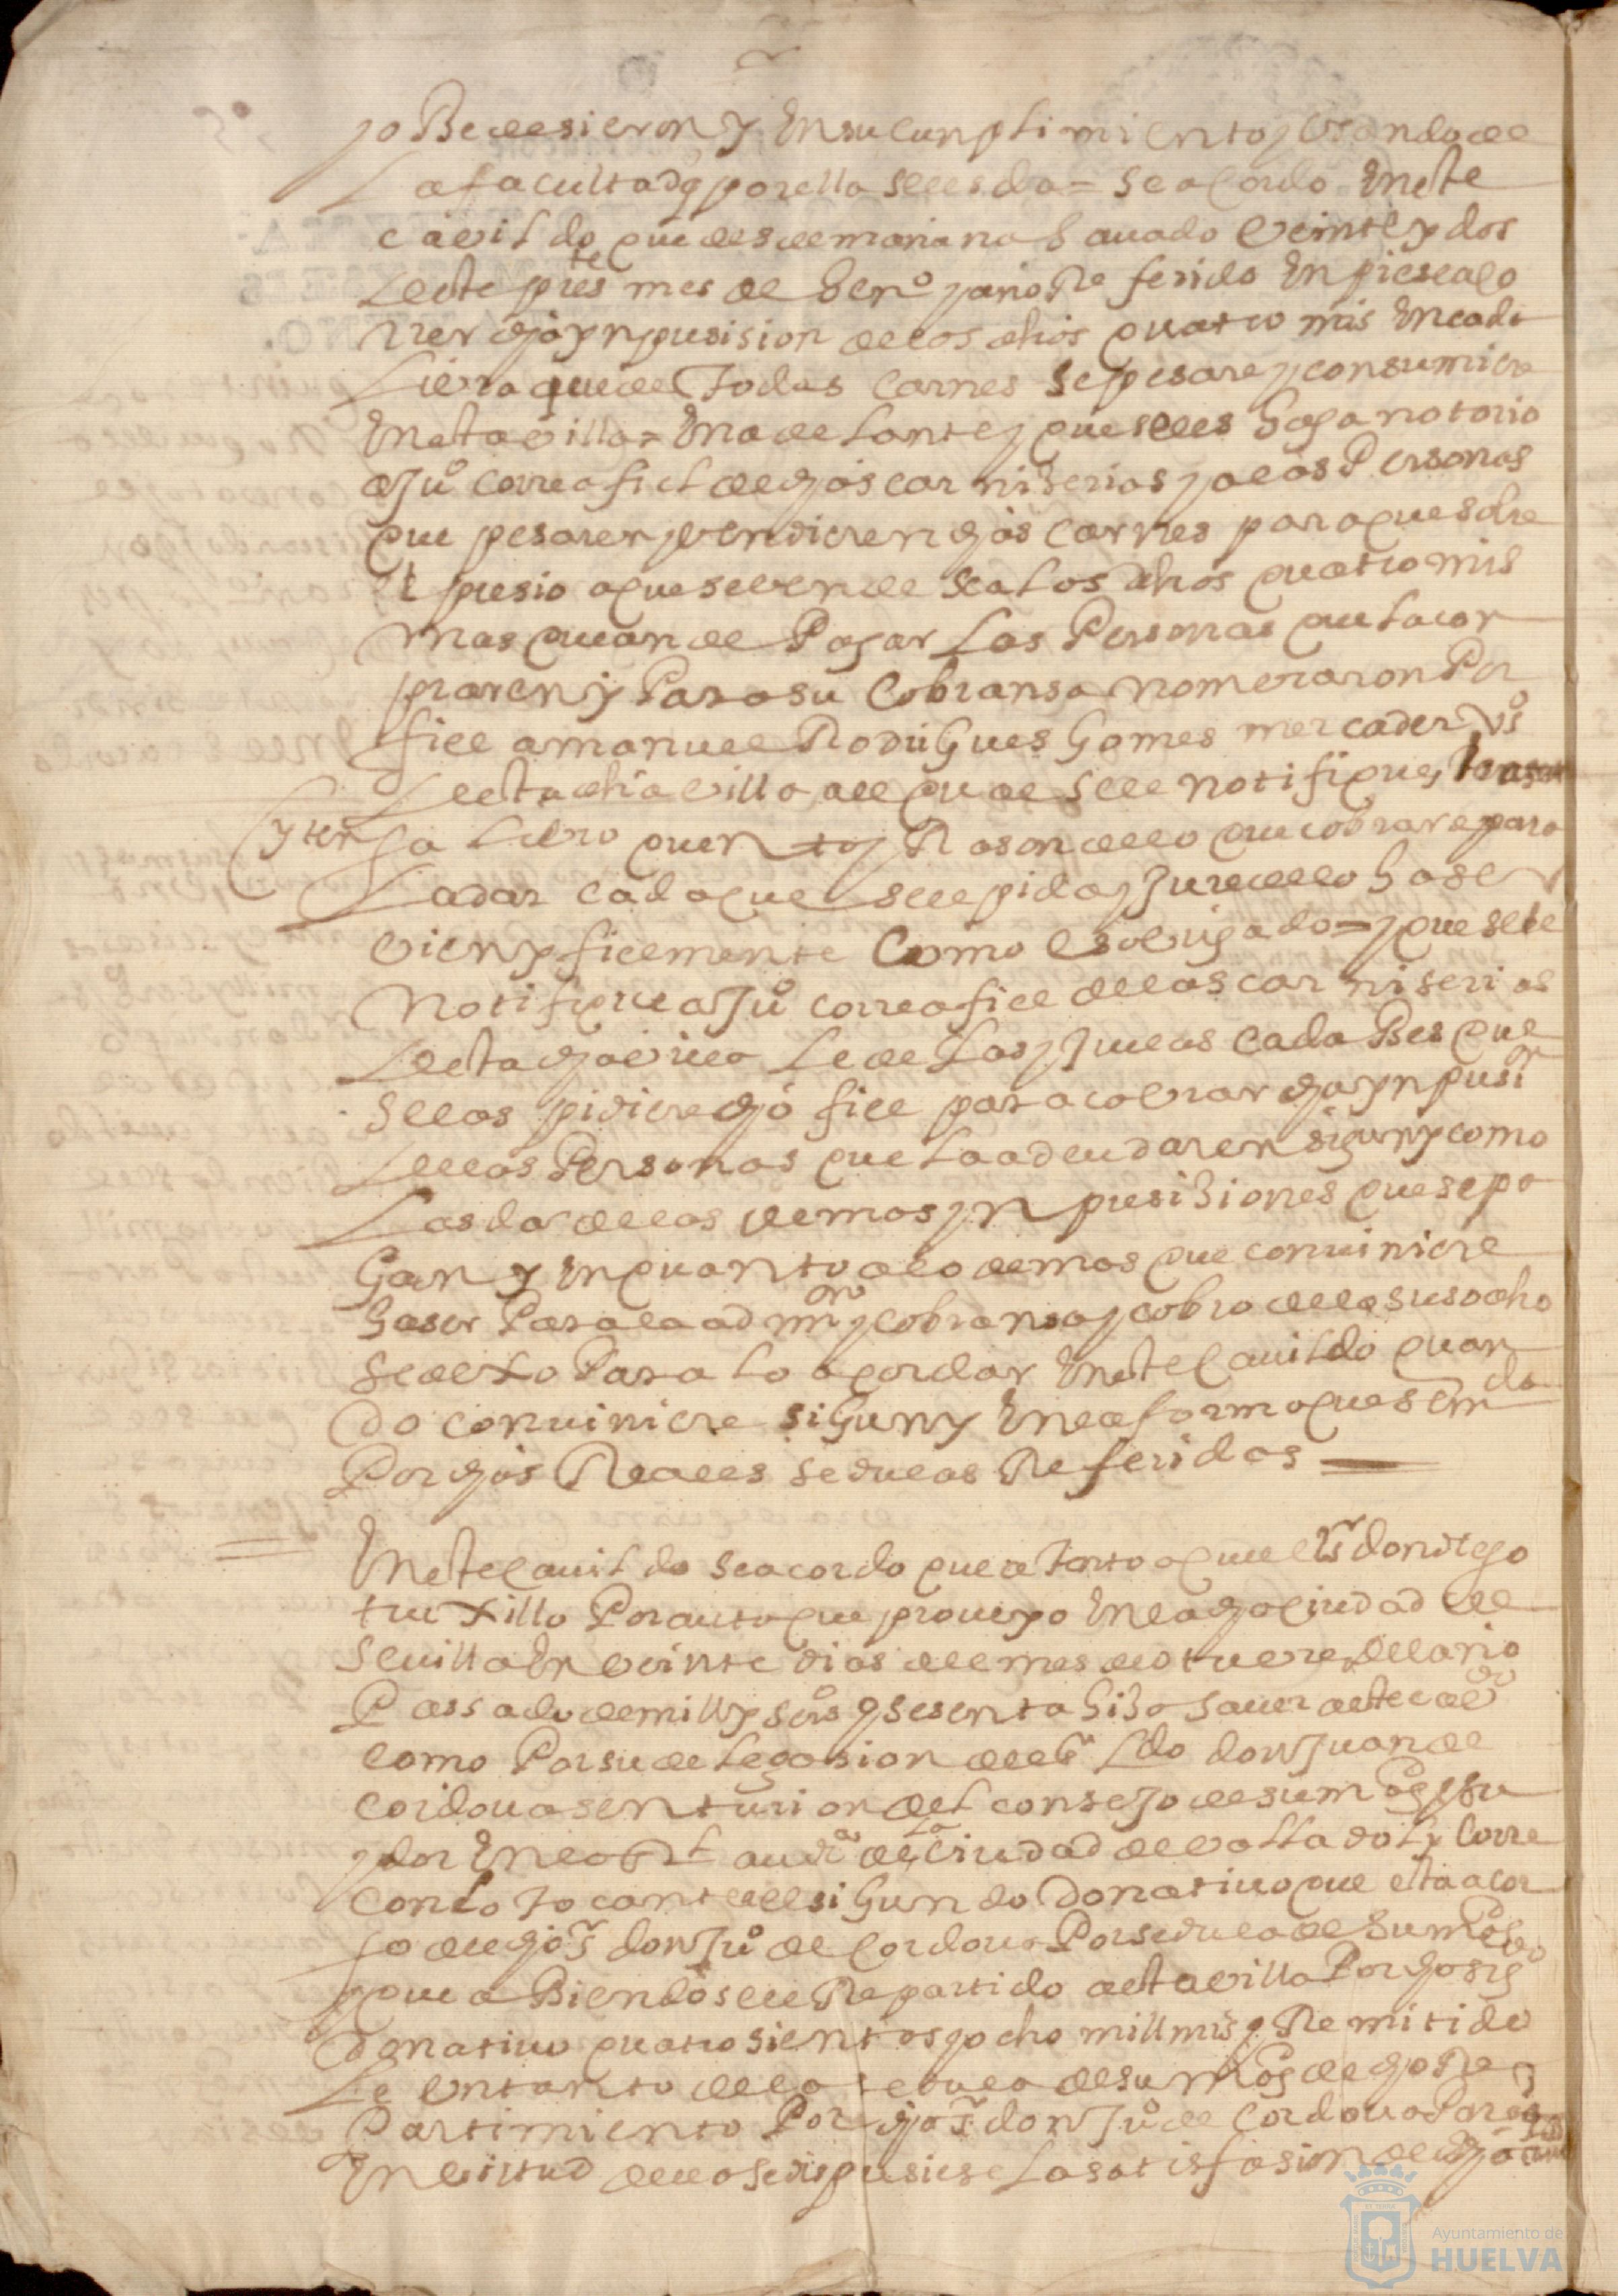 yoBedesieron y En su cunplimiento y Vsando de
la facultad q por ella se les da = se acordo En este
cavildo que desde mañana Savado veinte y dos
deste pres.te mes de Hen.o y año Referido Enpiese a co
rrer dha ynpusision de los dhos quatro mrs En cada
Livra que de Todas Carnes se pesare y consumiere
En esta villa = En adelante y que se les haga notorio
a Ju.o correa fiel de dhas carniserias y a las Personas
que pesaren y vendieren dhas carnes para que sobre
el presio a que se vende sea los dhos quatro mrs
mas que an de Pagar Las Personas que la con
praren y Para su Cobransa nomeraron Por
fiel a manuel Rodrigues Gomes mercader Vs.o
desta dha villa al qual se le notifique
ga Libro quenta y Rason de lo que cobrare para
La dar cada que se le pida y Jure de lo haser
vien y fielmente Como es obligado = y que se le
Notifique a Ju.o correa fiel de las carniserias
desta dha villa le de Las Jueas Cada Bes que
se las pidiere dho fiel para cobrar dha ynpusi.on
de las Personas que la adeudaren sigun y como
Las da de las demas ynpusisiones que se pa
Gan y En quanto a lo demas que conuiniere
Haser Para la adm.on y cobransa y cobro de lo susodho
se dexo Para lo acordar En este Cauildo quan
do conuiniere sigun y En la forma que se m.da
Por dhas Reales sedulas Referidas
En este Cauildo se acordo que a Tento a que el s.r don diego
truxillo Por auto que proueyo En la dha Ciudad de
Seuilla En veinte dias del mes de otuvre del año
Passado de mill y seis.os y sesenta hiso saver a este cav.do
como Por su delegasion del s.r L.do don Juan de
cordoua senturion del consejo de su mag.d y su
ydor En la R.l aud.a de la Ciudad de valladolid y Corre
con Lo Tocante al sigundo Donatiuo que esta a car
go del dho s.r don Ju.o de Cordoua Por sedula de Su mag.d
y que aBiendosele Repartido a esta villa Por dho sig.do
donatiuo quatrosientos y ocho mill mrs y Remitido
Le Vn tanto de la sedula de su mag.d de dho Re
Partimiento Por dho s.r don Ju.o de Cordoua Para q
En virtud della se dispusiese La satisfasion de dha
yten
Ayuntamiento de
HUELVA